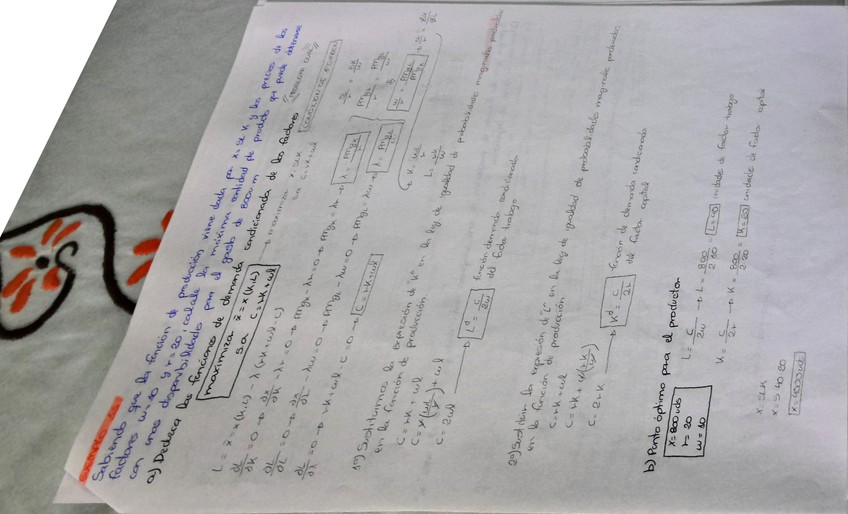 Sabiendo que la función de producción viene dada por X=5LK y los precios de los
factores w=10 y r=20, calcule la máxima cantidad de producto que puede obtenerse
con unas disponibilidades para el gasto de 800 u.m
a) Deduzca las funciones de demanda condicionada de los factores
maximizar x̄ = x(K,L)
s.a. C=rK+wL
L = x̄ = x(K,L) - λ(rK+wL-C)
∂L/∂K = 0 → ∂x/∂K - λr = 0 → PMgK - λr = 0 → PMgK = λr → λ = PMgK/r
∂L/∂L = 0 → ∂x/∂L - λw = 0 → PMgL - λw = 0 → PMgL = λw → λ = PMgL/w
∂L/∂λ = 0 → rK + wL - C = 0 → C = rK+wL
1º) Sustituimos la expresión de "K" en la ley de igualdad de productividades marginales ponderadas
en la función de producción
C = rK + wL
C = r(wL/r) + wL
C = 2wL → Lᵈ = C/2w función demanda condicionada
del factor trabajo
2º) Sustituir la expresión de "L" en la ley de igualdad de productividades marginales ponderadas
en la función de producción
C = rK + wL
C = rK + w(rK/w)
C = 2rK → Kᵈ = C/2r función de demanda condicionada
del factor capital
b) Punto óptimo para el productor
X=800 uds
r = 20
w = 10
L = C/2w → L = 800/2·10 = L=40 unidades de factor trabajo
K = C/2r → K = 800/2·20 = K=20 unidades de factor capital
X = 5LK
X = 5·40·20
X=4000 uds